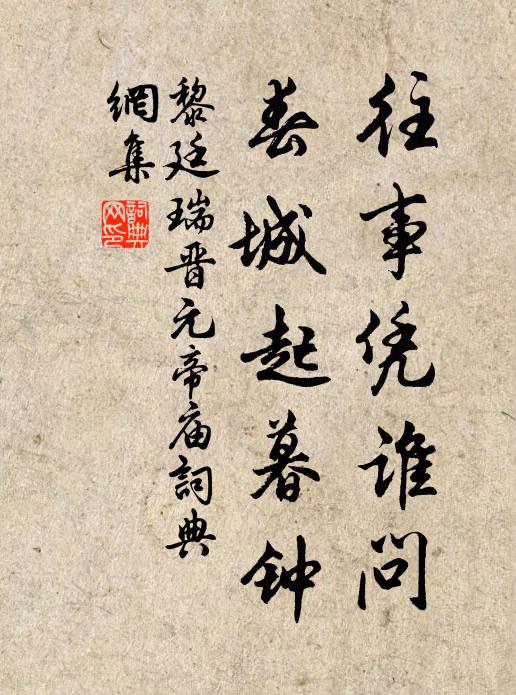 往事凭谁问
春城起暮钟
黎廷瑞晋元帝庙詞典
網集
詞典网印